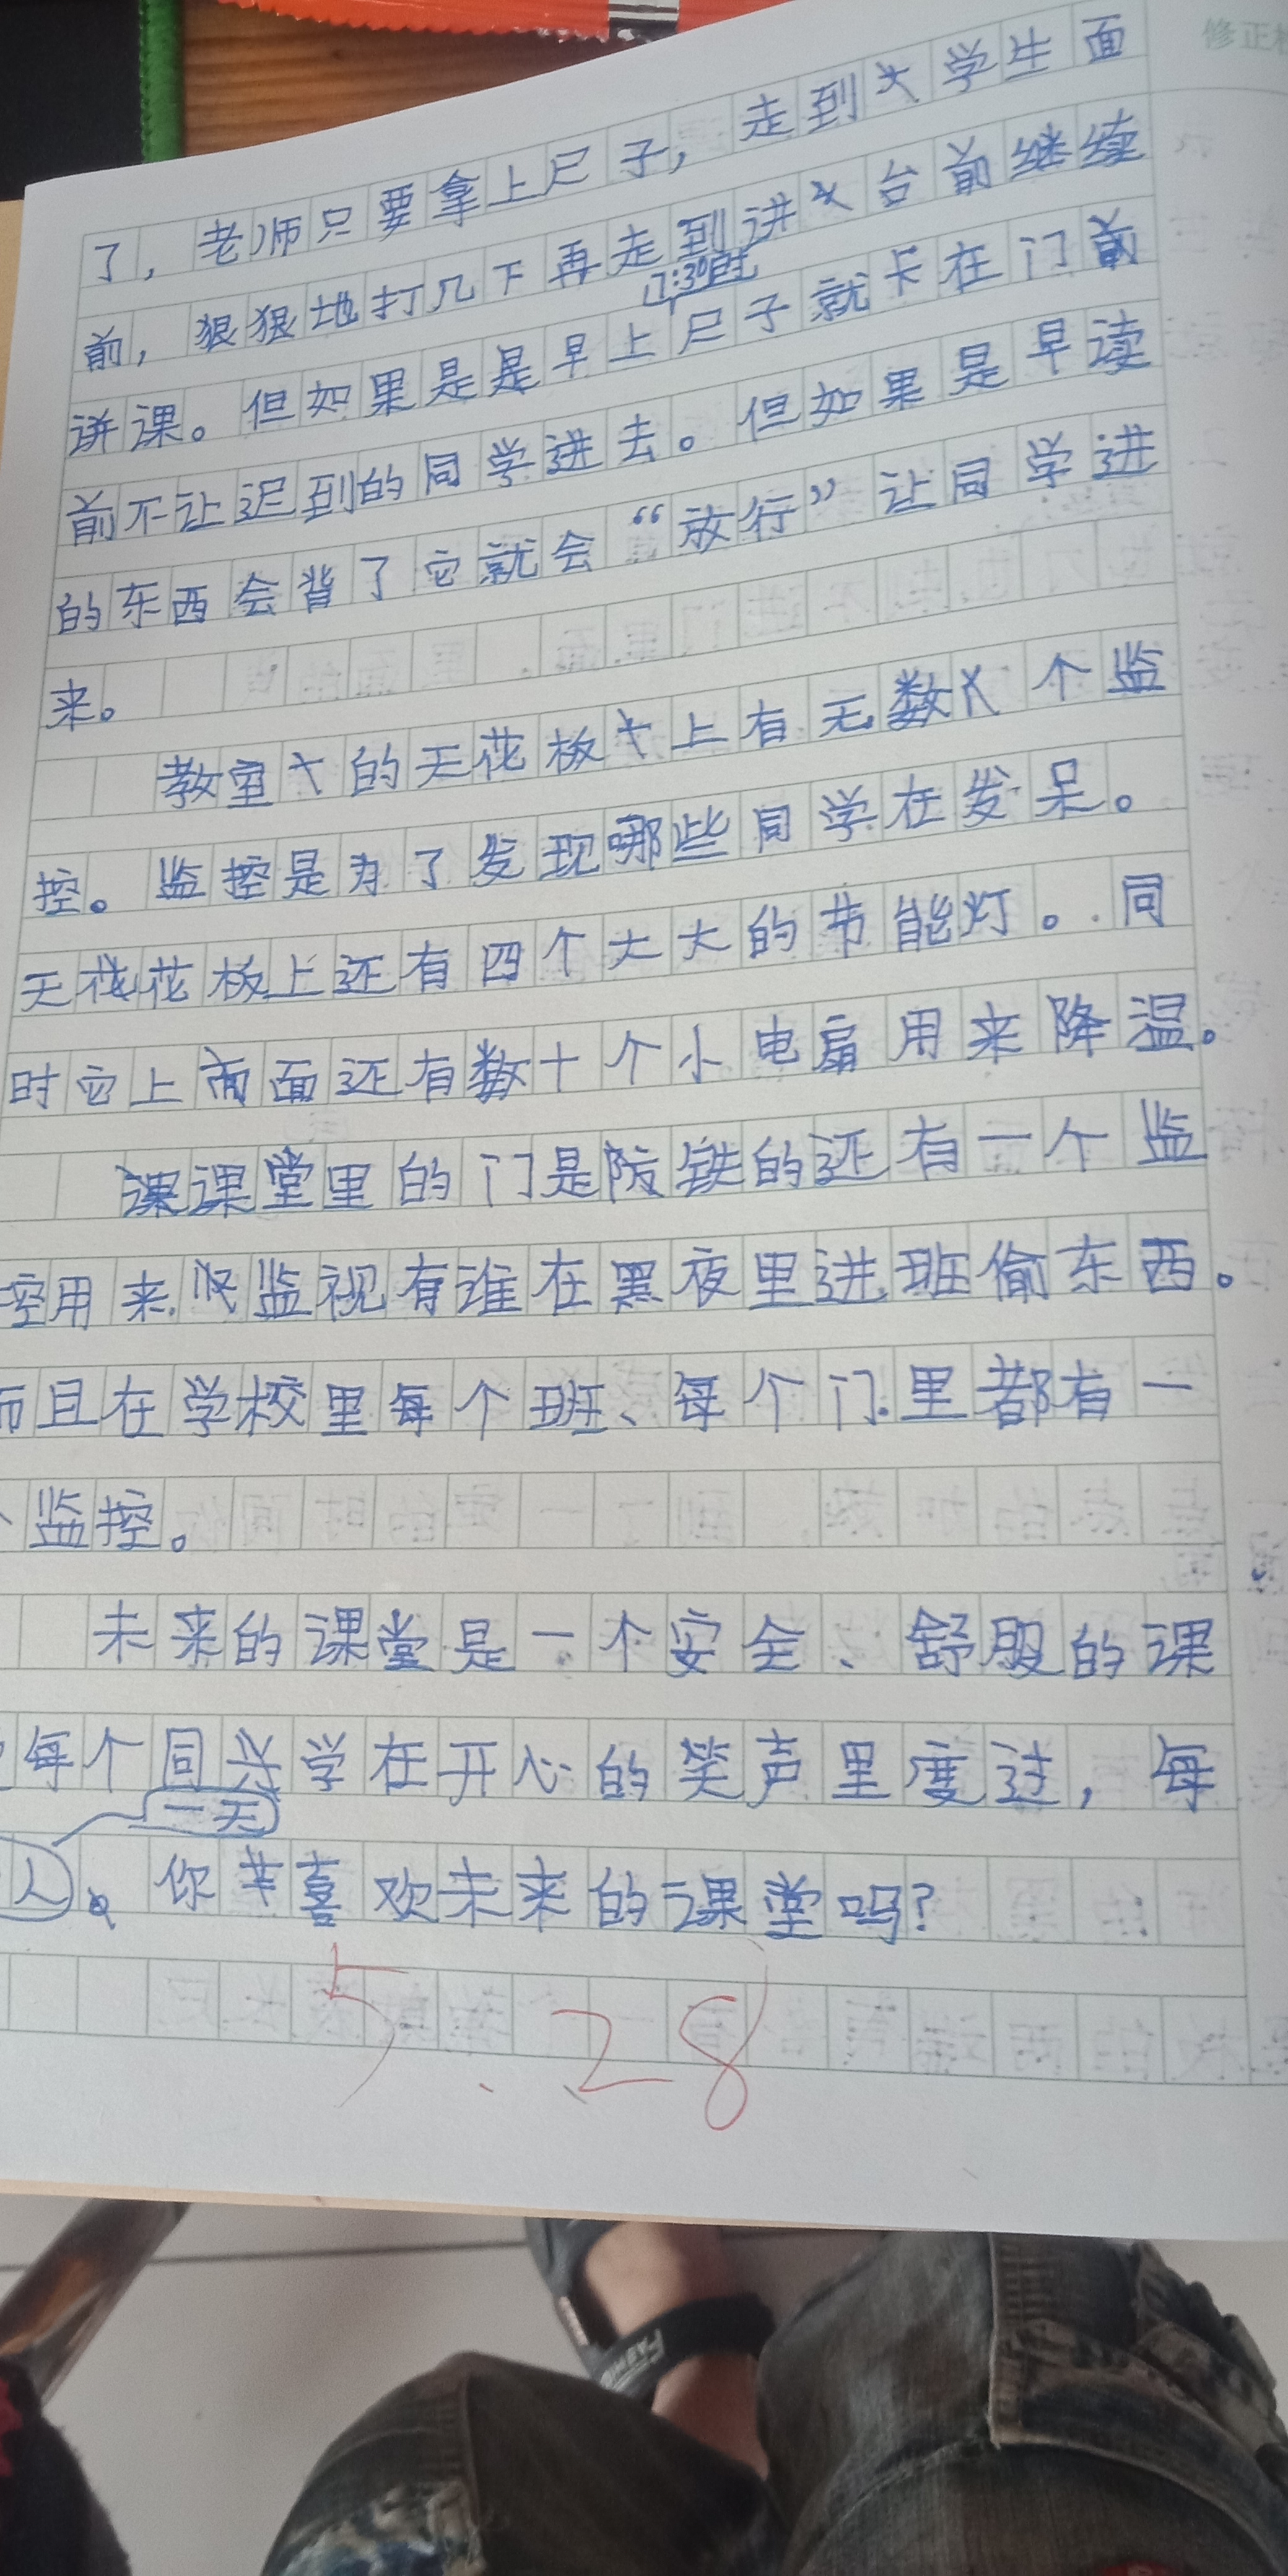 修正
了，老师只要拿上尺子，走到学生面
前，狠狠地打几下再走到讲台前继续
7:30时
讲课。但如果是是早上尺子就卡在门前
前不让迟到的同学进去。但如果是早读
的东西会背了它就会“放行”让同学进
来。
教室的天花板上有无数个监
控。监控是为了发现哪些同学在发呆。
天花花板上还有四个大大的节能灯。同
时它上面面还有数十个小电扇用来降温。
课课堂里的门是防铁的还有一个监
控用来监视有谁在黑夜里进班偷东西。
而且在学校里每个班、每个门里都有一
个监控。
未来的课堂是一个安全、舒服的课
每个同学在开心的笑声里度过，每
一天
人。你喜欢未来的课堂吗？
5.28